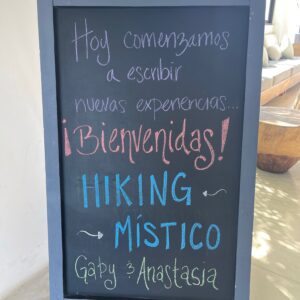 Hoy comenzamos
a escribir
nuevas experiencias...
¡Bienvenidas!
HIKING
MÍSTICO
Gaby & Anastasia